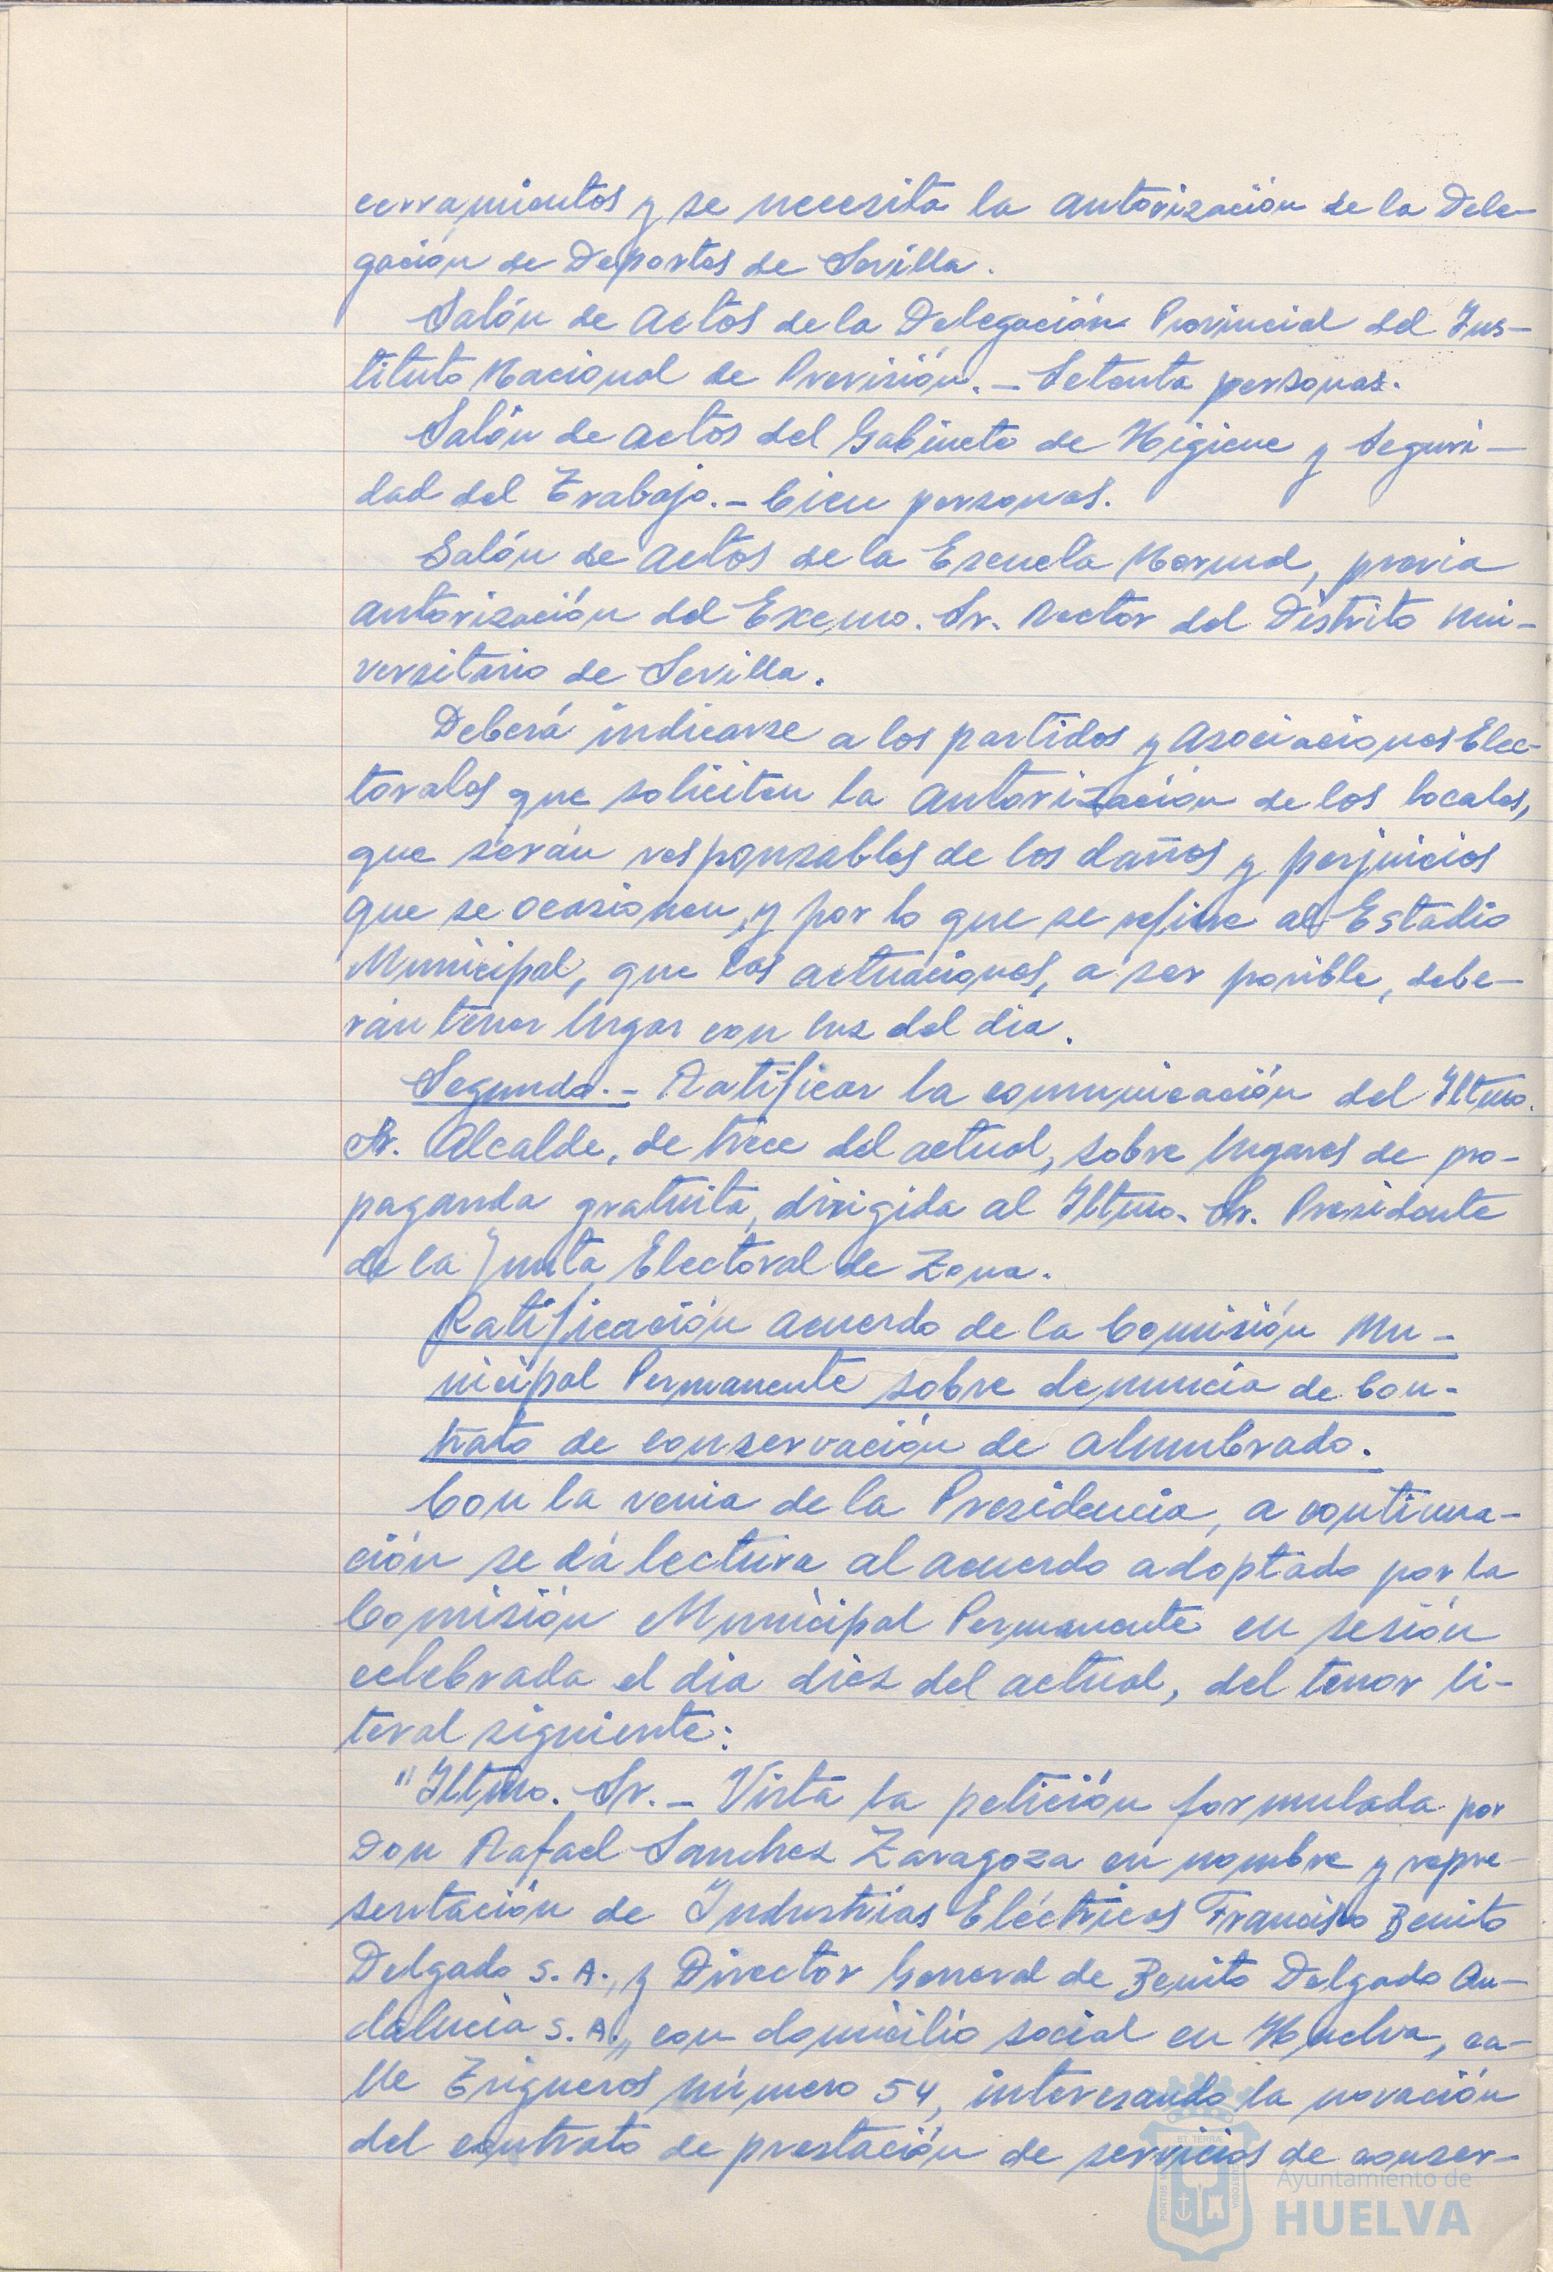 cerramientos y se necesita la autorización de la Dele-
gación de Deportes de Sevilla.
Salón de actos de la Delegación Provincial del Ins-
tituto Nacional de Previsión.- Setenta personas.
Salón de actos del Gabinete de Higiene y Seguri-
dad del Trabajo.- Cien personas.
Salón de actos de la Escuela Normal, previa
autorización del Excmo. Sr. Rector del Distrito Uni-
versitario de Sevilla.
Deberá indicarse a los partidos y asociaciones Elec-
torales que soliciten la autorización de los locales,
que serán responsables de los daños y perjuicios
que se ocasionen, y por lo que se refiere al Estadio
Municipal, que las actuaciones, a ser posible, debe-
rán tener lugar con luz del dia.
Segundo.- Ratificar la comunicación del Iltmo.
Sr. Alcalde, de trece del actual, sobre lugares de pro-
paganda gratuita, dirigida al Iltmo. Sr. Presidente
de la Junta Electoral de Zona.
Ratificación acuerdo de la Comisión Mu-
nicipal Permanente sobre denuncia de Con-
trato de conservación de alumbrado.
Con la venia de la Presidencia, a continua-
ción se dá lectura al acuerdo adoptado por la
Comisión Municipal Permanente en sesión
celebrada el dia diez del actual, del tenor li-
teral siguiente:
"Iltmo. Sr.- Vista la petición formulada por
Don Rafael Sanchez Zaragoza en nombre y repre-
sentación de Industrias Eléctricas Francisco Benito
Delgado S.A., y Director General de Benito Delgado An-
dalucia S.A., con domicilio social en Huelva, ca-
lle Trigueros número 54, interesando la novación
del contrato de prestación de servicios de conser-
Ayuntamiento de
HUELVA